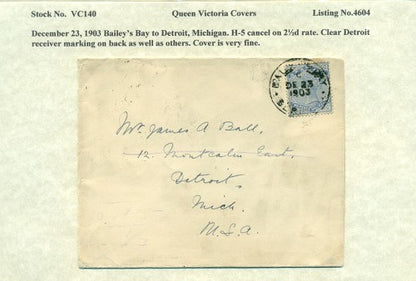 Stock No. VC140 Queen Victoria Covers Listing No.4604
December 23, 1903 Bailey's Bay to Detroit, Michigan. H-5 cancel on 2½d rate. Clear Detroit
receiver marking on back as well as others. Cover is very fine.
BAILEY'S BAY
DE 23
1903
Mr. James A Ball,
12. Montcalm East,
Detroit,
Mich.
U.S.A.